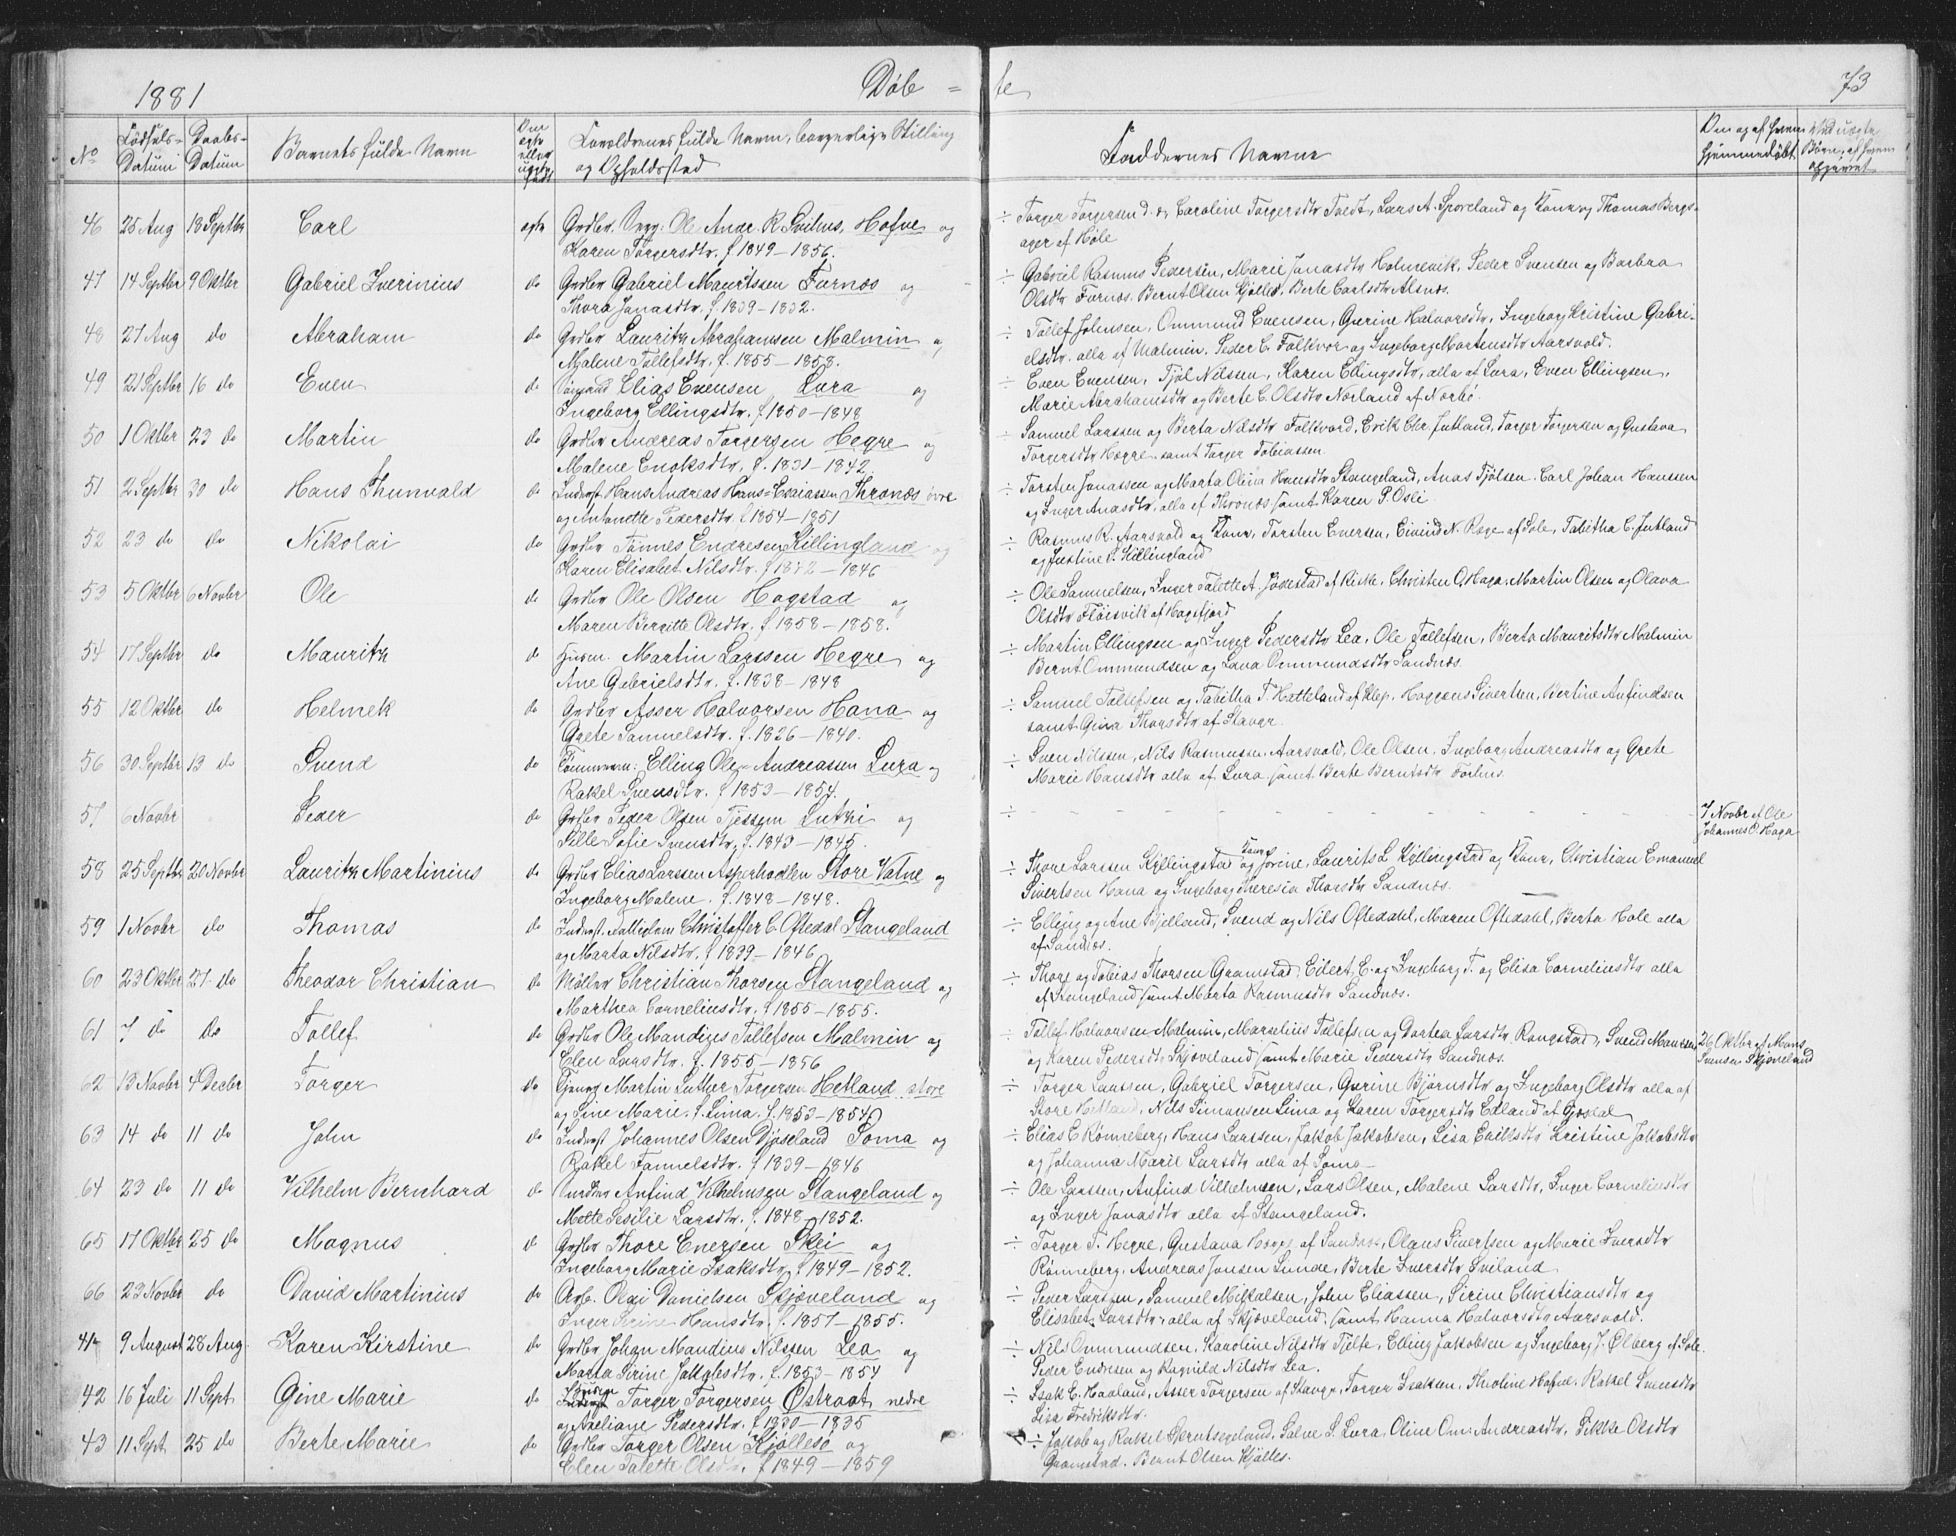 1881
Døbte
73
No
Fødsels-Datum
Daabs-Datum
Barnets fulde Navn
Om ægte eller uægte født
Forældrenes fulde Navn, borgerlige Stilling og Opholdssted
Faddernes Navne
Om og af hvem hjemmedøbt
Ved uægte Børn, af hvem opgivet
46 25 Aug 18 Septbr Carl ægte Grdbr. Ole Andr. R. Svilius, Hofve og
Karen Torgersdtr. f. 1849 – 1856.
÷ Torger Torgersen d. æ, Caroline Torgersdtr Tvedt, Lars A. Sporeland og Kone og Thomas Bergs-
ager af Høle
47 14 Septbr 9 Oktbr Gabriel Iverinius do Grdbr Gabriel Mauritssen Furnæs og
Thora Jonasdtr, f. 1839 – 1832.
÷ Gabriel Rasmus Pedersen, Marie Jonasdtr Holmevik, Peder Svensen og Barbra
Olsdtr Furnæs. Bernt Olsen Kjølles, Berte Carlsdtr Alsnæs.
48 27 Aug do Abraham do Grdbr Lauritz Abrahamsen Malmin og
Malene Tollefsdtr. f. 1855 – 1858.
÷ Tollef Johnsen, Ommund Evensen, Gurine Halvorsdtr, Ingeborg Kristine Gabri-
elsdtr. alle af Malmin, Peder C. Folkvor og Ingeborg Mortensdtr Aarsvold.
49 21 Septbr 16 do Even do Elias Evensen Lura og
Ingeborg Ellingsdtr. f. 1850 – 1848
÷ Even Evensen, Tjøl Nilssen, Karen Ellingsdtr, alle af Lura, Even Ellingsen,
Marie Abrahamsdtr og Berte C. Olsdtr Norland af Norbø.
50 1 Oktbr 23 do Martin do Grdbr Andreas Torgersen Hegre og
Malene Enoksdtr, f. 1831 – 1842.
÷ Samuel Larssen og Berta Nilsdtr Folkvord, Erik Chr. Jutland, Torger Torgersen og Gustava
Torgersdtr Hegre samt Torger Tobiassen.
51 2 Septbr 30 do Hans Thunvald do Inderst Hans Andreas Hans-Esaiassen Thronæs övre
og Antonette Pedersdtr. f. 1854 – 1851
÷ Torsten Jonassen og Marta Olina Hansdtr Stangeland, Anas Tjølsen, Carl Johan Hanssen
og Inger Anasdtr, alle af Thronæs samt Karen P. Osli
52 23 do do Nikolai do Grdbr Tønnes Endresen Killingland og
Karen Elisabet Nilsdtr. f. 1842 – 1846
÷ Rasmus R. Aarsvold og Kone, Torsten Eversen, Eivind N. Røge af Sole, Tabitha C. Jutland
og Justine S. Killingland
53 5 Oktbr 6 Novbr Ole do Grdbr Ole Olsen Hogstad og
Maren Bergitte Olsdtr. f. 1858 – 1858.
÷ Ole Samuelsen, Inger Talette A. Jødestad af Riske, Christen O. Hoga, Martin Olsen og Olava
Olsdtr Fløisvik af Høgsfjord
54 17 Septbr do Mauritz do Husm. Martin Larssen Hegre og
Ane Gabrielsdtr. f. 1838 – 1848
÷ Martin Ellingsen og Inger Pedersdtr Lea, Ole Tollefsen, Berta Mauritsdtr Malmin
Bernt Ommundsen og Lava Ommundsdtr Sandnæs.
55 12 Oktbr do Helmek do Grdbr Asser Halvorsen Hana og
Grete Samuelsdtr. f. 1826 – 1840.
÷ Samuel Tollefsen og Tabitha T. Hatteland af Klep, Haagens Sivertsen, Bertine Anfindsen
samt Gina Thorsdtr af Stavgr.
56 30 Septbr 13 do Svend do Tømmerm: Elling Ole Andreassen Lura og
Rakel Svensdtr. f. 1853 – 1854.
÷ Sven Nilssen, Nils Rasmussen Aarsvold, Ole Olsen, Ingeborg Andreasdtr og Grete
Marie Hansdtr alle af Lura samt Berte Berntsdtr Forlus.
57 6 Novbr Peder do Grdbr Peder Olsen Tjessem Lutsi og
Sille Sofie Svensdtr, f. 1843 – 1845.
÷ 7 Novbr af Ole
Johannes O. Hoga
58 25 Septbr 20 Novbr Lauritz Martinius do Grdbr Elias Larssen Asperhodlen Store Vatne og
Ingeborg Malene. f. 1848 – 1848.
÷ Thore Larssen Kyllingstad og Kone Jorine, Laurits L. Kyllingstad og Kone, Christian Emanuel
Sivertsen Hana og Ingeborg Theresia Thorsdtr Sandnæs.
59 1 Novbr do Thomas do Inderst. Christoffer C. Oftedal Stangeland
og Marta Nilsdtr. f. 1839 – 1846
÷ Elling og Ane Bjelland, Svend og Nils Oftedahl, Maren Oftedahl, Berta Hole alle
af Sandnæs.
60 23 Oktbr 27 do Theodor Christian do Møller Christian Thorsen Stangeland og
Marthea Corneliusdtr. f. 1855 – 1855.
÷ Thore og Tobias Thorsen Gramstad, Eilert E. og Ingeborg T. og Elisa Corneliusdtr alle
af Stangeland samt Marta Rasmusdtr Sandnæs.
61 7 do do Tollef do Grdbr Ole Mandius Tollefsen Malmin og
Elen Larsdtr. f. 1855 – 1856
÷ Tollef Halvorsen Malmin, Marselius Tollefsen og Dortea Larsdtr Rongstad, Svend Monssen
og Karen Pedersdtr Skjæveland samt Marie Pedersdtr Sandnæs.
26 Oktbr af Mons
Svensen Skjæveland
62 13 Novbr 4 Decbr Torger do Martin Luther Torgersen Hetland store
og Sine Marie f. Lima. f. 1853 – 1854
÷ Torger Larssen, Gabriel Torgersen, Gurine Bjørnsdtr og Ingeborg Olsdtr alle af
Store Hetland, Nils Simonsen Lima og Karen Torgersdtr Edland af Gjesdal
63 14 do 11 do John do Inderst Johannes Olsen Djøseland Soma og
Rakel Tønnelsdtr. f. 1839 – 1846
÷ Elias E. Rønneberg, Hans Larssen, Jakob Jakobsen, Lisa Eriksdtr, Kristine Jakobsdtr
og Johanna Marie Larsdtr alle af Soma
64 23 do 11 do Vilhelm Bernhard do Anfind Vilhelmsen Stangeland og
Mette Sesilie Larsdtr. f. 1848 – 1852.
÷ Ole Larssen, Anfind Vilhelmsen, Lars Olsen, Malene Larsdtr, Inger Corneliusdtr
og Inger Jonasdtr alle af Stangeland.
65 17 Oktbr 25 do Magnus do Grdbr Thore Enersen Skei og
Ingeborg Marie Isaksdtr, f. 1849 – 1852.
÷ Torger T. Hegre, Gustava Hegre af Sandnæs, Olaus Sivertsen og Marie Iversdtr
Rønneberg, Andreas Jonsen Lunde, Berte Iversdtr Sviland
66 23 Novbr do David Martinius do Arb. Olai Danielsen Skjæveland og
Inger Serine Hansdtr. f. 1857 – 1855.
÷ Peder Larssen, Samuel Mikalsen, John Eliassen, Sirine Christiansdtr og
Elisabet Larsdtr, alle af Skjæveland, samt Hanna Halvorsdtr Aarsvold.
41 9 August 28 Aug. Karen Kirstine do Grdbr Johan Mandius Nilssen Lea og
Marta Sirine Jakobsdtr. f. 1853 – 1854
÷ Nils Ommundsen, Karoline Nilsdtr Tjelte, Elling Jakobsen og Ingeborg J. Ølberg af Sole
Peder Endresen og Ragnild Nilsdtr Lea.
42 16 Juli 11 Sept Gine Marie do Torger Torgersen Østraat nedre
og Axeliane Pedersdtr, f. 1830 – 1835
÷ Isak E. Haaland, Asser Torgersen af Stavgr, Torger Isaksen, Theoline Hofve, Rakel Svensdtr
Lisa Fredriksdtr.
43 11 Sept. 25 do Berte Marie do Grdbr Torger Olsen Kjøllesø og
Elen Talette Olsdtr. f. 1849 – 1859
÷ Jakob og Rakel Berntsegeland, Salve S. Lura, Oline Om. Andreasdtr, Sikke Olsdtr
Gramstad. Bernt Olsen Kjølles.